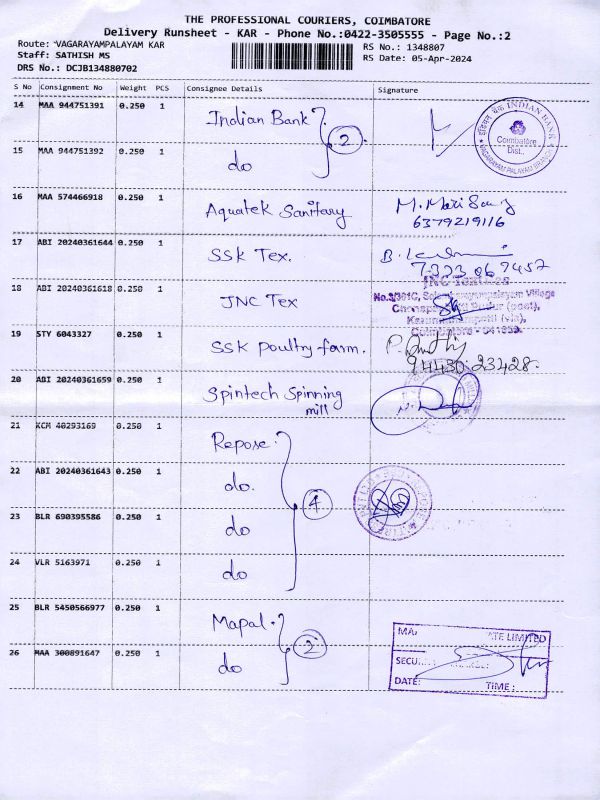 THE PROFESSIONAL COURIERS, COIMBATORE
Delivery Runsheet - KAR - Phone No.:0422-3505555 - Page No.:2
Route: VAGARAYAMPALAYAM KAR
RS No.: 1348807
Staff: SATHISH MS
RS Date: 05-Apr-2024
DRS No.: DCJB134880702
S No Consignment No Weight PCS Consignee Details Signature
14 MAA 944751391 0.250 1 Indian Bank 2
INDIAN BANK
Coimbatore
Dist.,
VAGARAYAM PALAYAM BRANCH
15 MAA 944751392 0.250 1 do
16 MAA 574466918 0.250 1 Aquatek Sanitary
6379219116
17 ABI 20240361644 0.250 1 SSK Tex.
7323 069457
18 ABI 20240361618 0.250 1 JNC Tex
19 STY 6043327 0.250 1 SSK poultry farm.
94430 23428.
20 ABI 20240361659 0.250 1 Spintech Spinning
mill
21 KCM 40293169 0.250 1 Repose.
22 ABI 20240361643 0.250 1 do. 4
23 BLR 690395586 0.250 1 do
24 VLR 5163971 0.250 1 do
25 BLR 5450566977 0.250 1 Mapal. 2
ATE LIMITED
26 MAA 300891647 0.250 1 do
SECU
DATE: TIME: